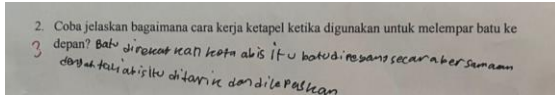 2. Coba jelaskan bagaimana cara kerja ketapel ketika digunakan untuk melempar batu ke
3 depan? Batu direkatkan keta abis itu batu diregang secara bersamaan
dengan tali abis itu ditarik dan dilepaskan